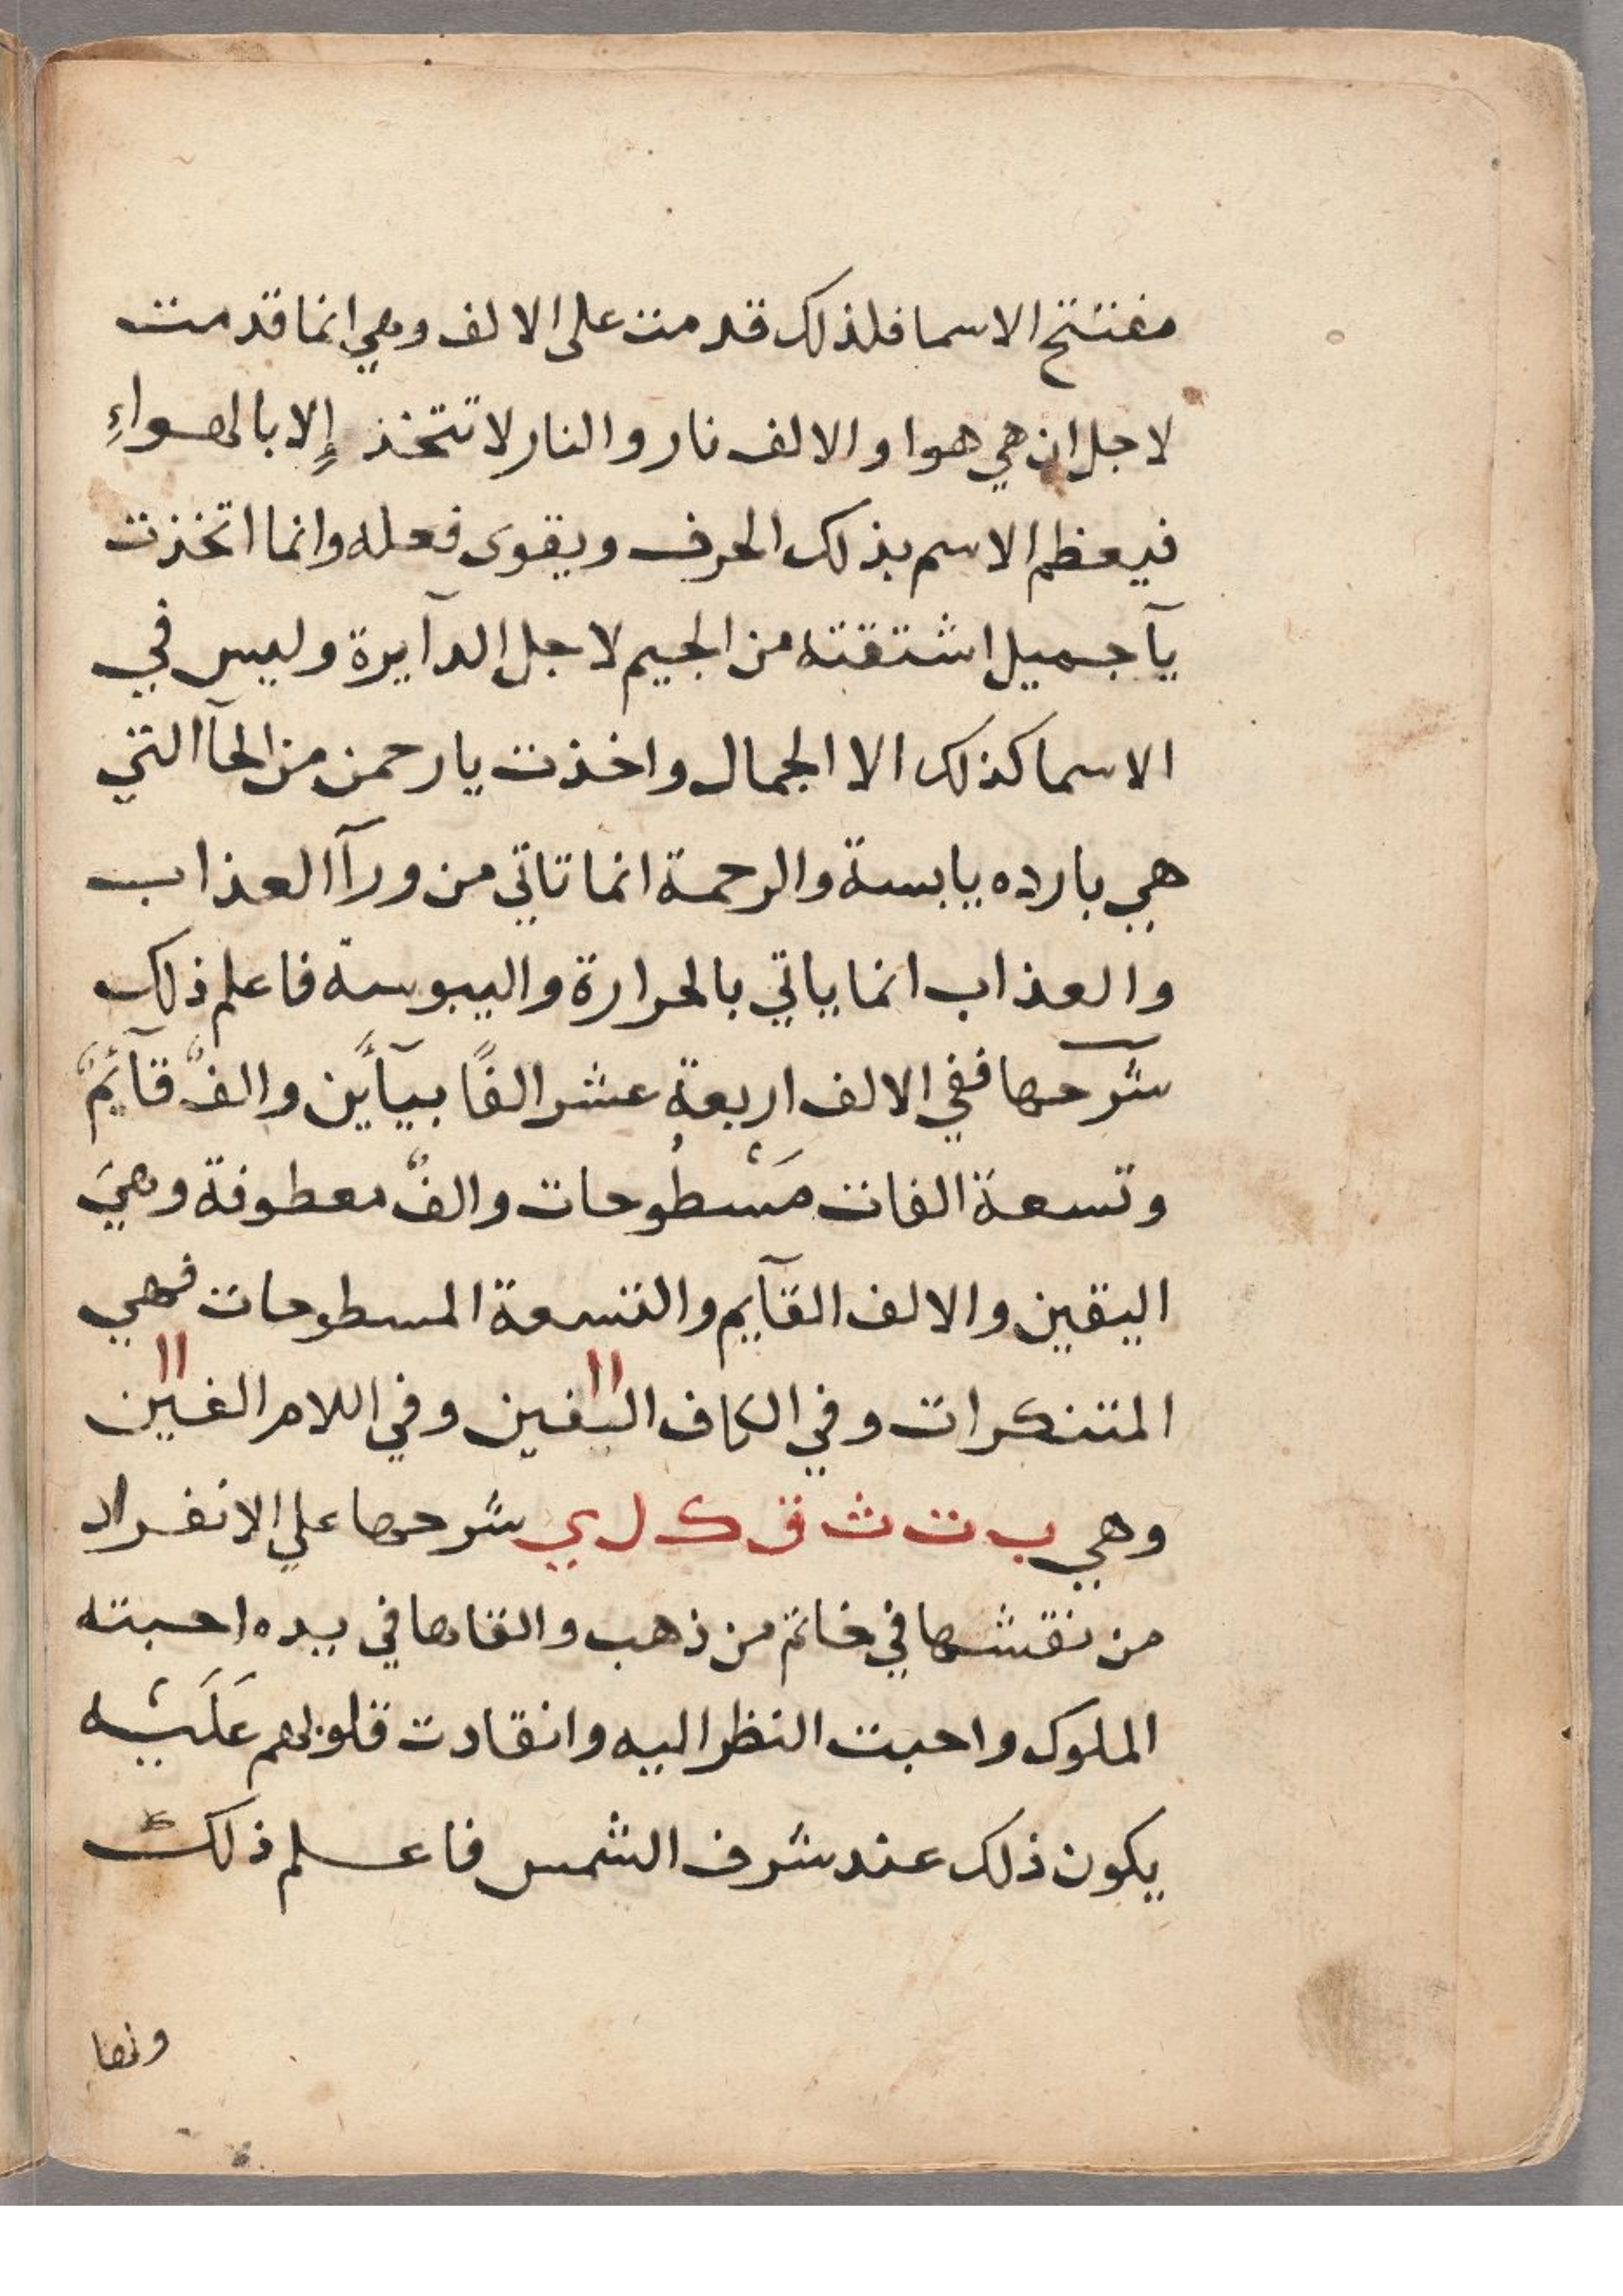 مفتتح الاسما فلذلك قدمت على الالف وهي انما قدمت
لاجل ان هي هوا والالف نار والنار لا تتخذ إلا بالهواءِ
فيعظم الاسم بذلك الحرف ويقوى فعله وانما اتخذت
يآ جميل اشتقته من الجيم لاجل الدآيرة وليس في
الاسما كذلك الا الجمال واخذت يا رحمن من الحآ التي
هي بارده يابسة والرحمة انما تاتي من ورآ العذاب
والعذاب انما ياتي بالحرارة واليبوسة فاعلم ذلك
شرحها ففي الالف اربعة عشر الفًا بيآئين والفٌ قآئمٌ
وتسعة الفات مَسْطُوحات والفٌ معطوفة وهيَ
اليقين والالف القآيم والتسعة المسطوحات فهي
المتنكرات وفي الكاف اليقين وفي اللام الفين
وهي ب ت ث ق ك ل ي شرحها علي الانفراد
من نقشها في خاتم من ذهب والقاها في يده احبته
الملوك واحبت النظر اليه وانقادت قلوبهم عَلَيْه
يكون ذلك عند شرف الشمس فاعلم ذلك